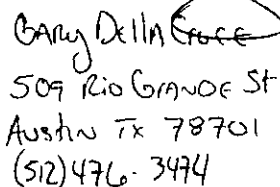 Gary Della Croce
509 Rio Grande St
Austin Tx 78701
(512) 476-3474